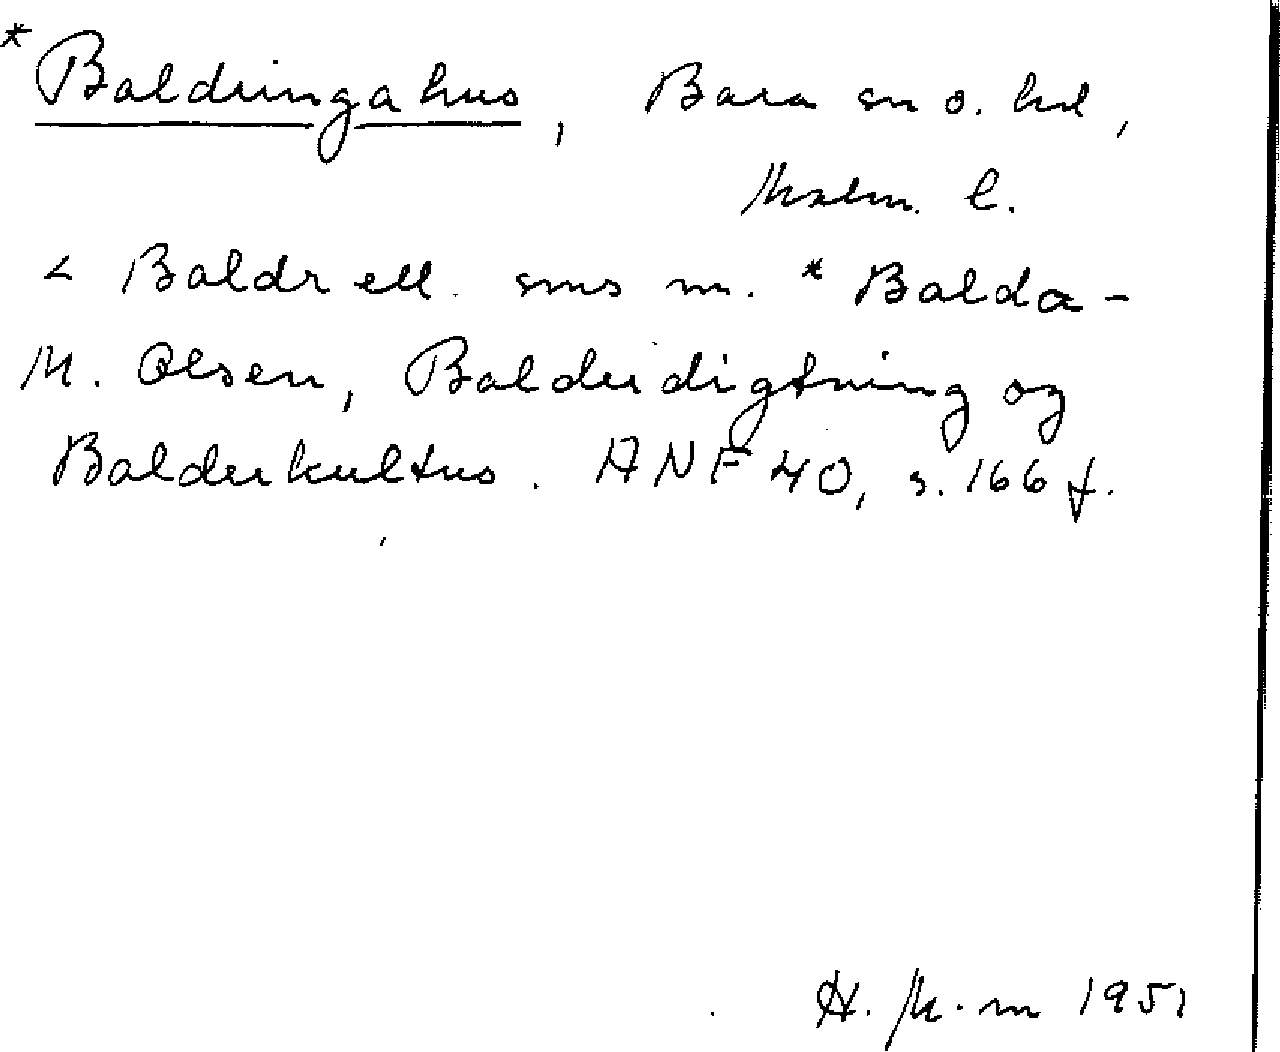 * Baldringahus, Bara sn o. hd,
Malm. l.
< Baldr ell. sms m. * Balda-
M. Olsen, Balderdigtning og
Balderkultus. ANF 40, s. 166 f.
H. M-m 1951